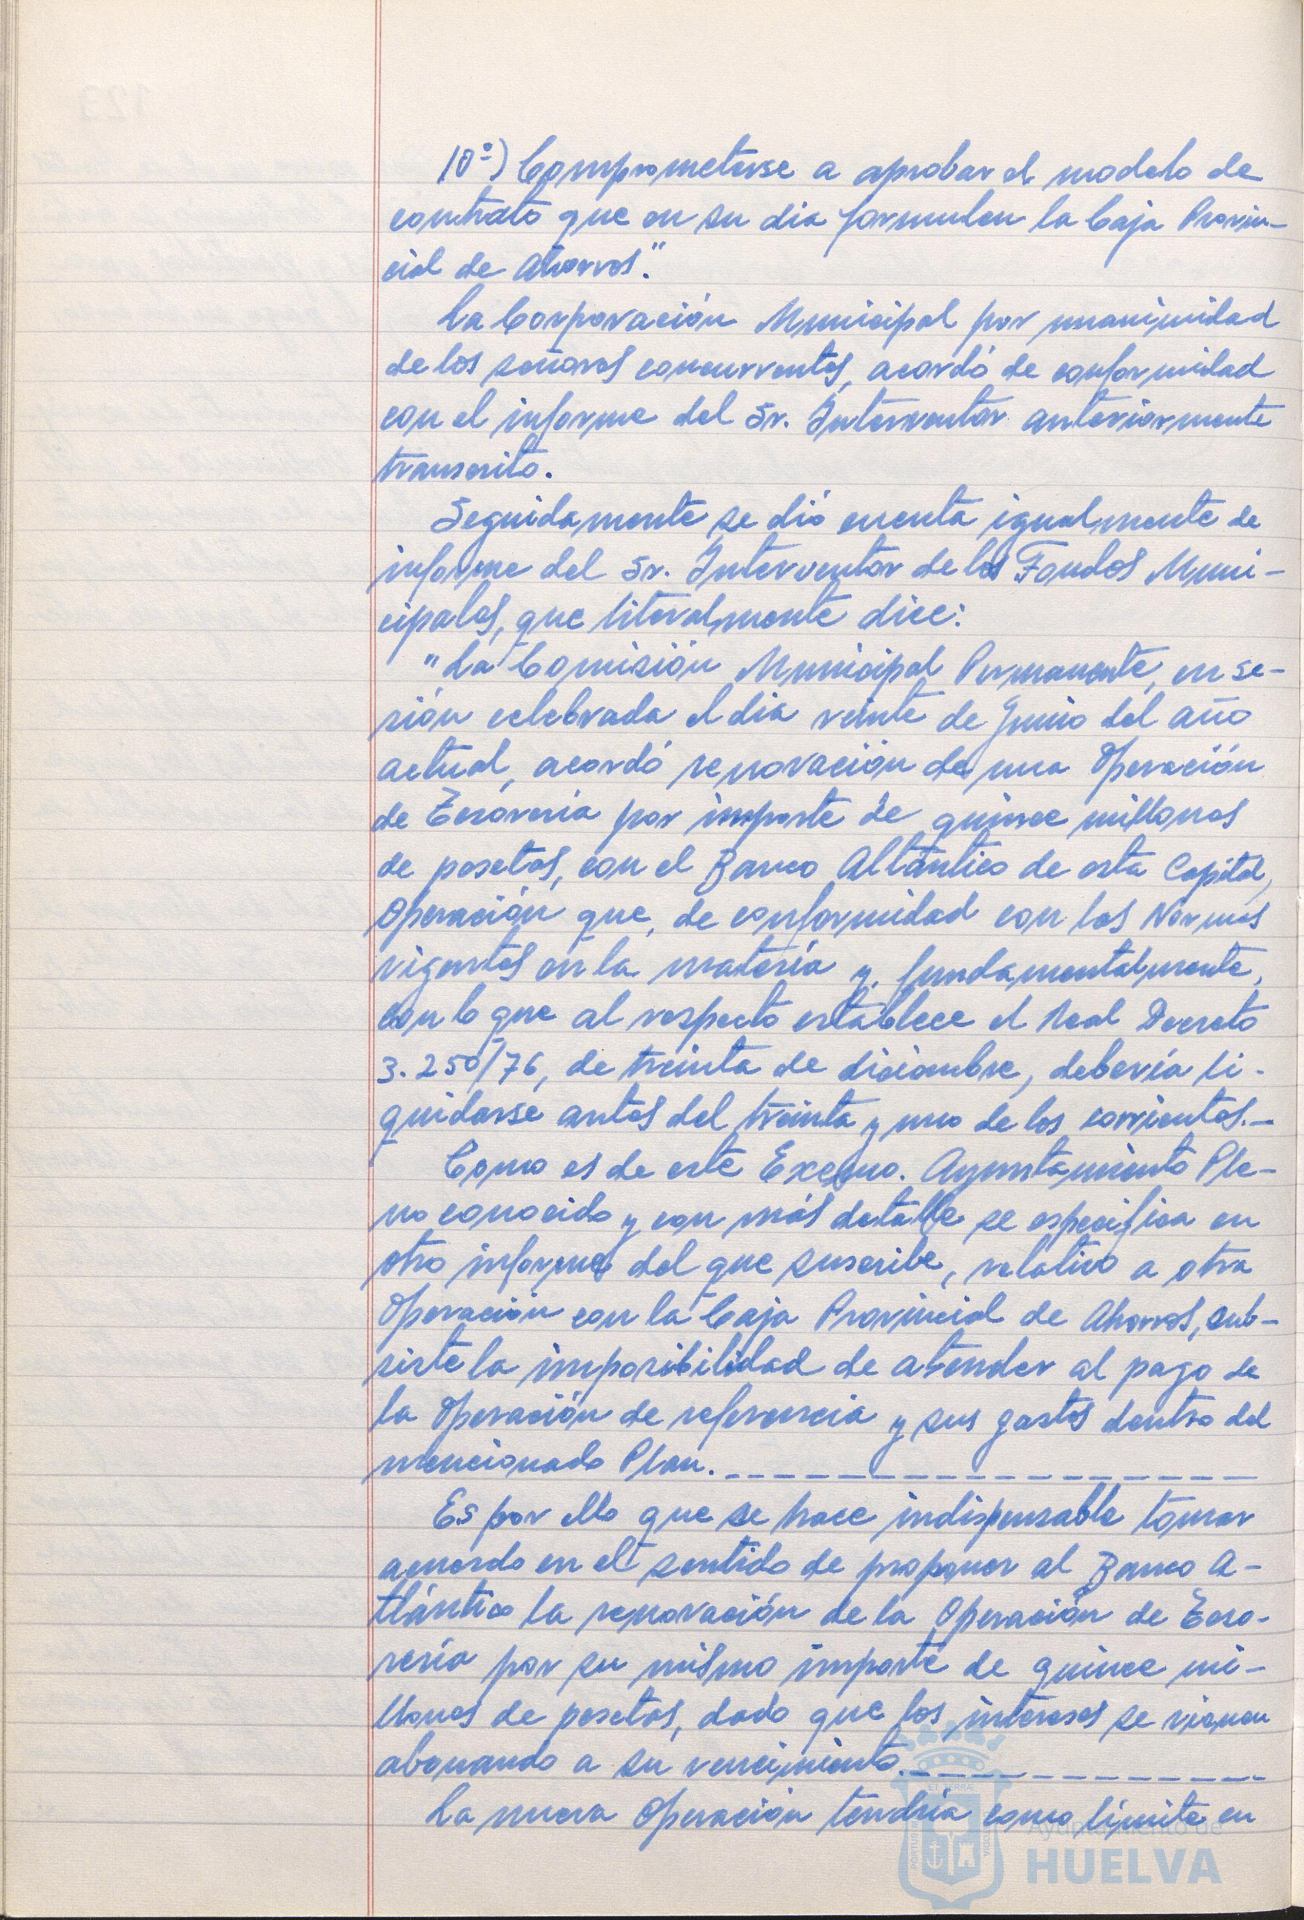 10º) Comprometerse a aprobar el modelo de
contrato que en su dia formulen la Caja Provin-
cial de Ahorros."
La Corporación Municipal por unanimidad
de los señores concurrentes, acordó de conformidad
con el informe del Sr. Interventor anteriormente
transcrito.
Seguidamente se dió cuenta igualmente de
informe del Sr. Interventor de los Fondos Muni-
cipales, que literalmente dice:
"La Comisión Municipal Permanente, en se-
sión celebrada el dia veinte de Junio del año
actual, acordó renovación de una Operación
de Tesoreria por importe de quince millones
de pesetas, con el Banco Atlántico de esta Capital,
Operación que, de conformidad con las Normas
vigentes en la materia y, fundamentalmente,
con lo que al respecto establece el Real Decreto
3.250/76, de treinta de diciembre, debería li-
quidarse antes del treinta y uno de los corrientes.-
Como es de este Excmo. Ayuntamiento Ple-
no conocido y con más detalle se especifica en
otro informe del que suscribe, relativo a otra
Operación con la Caja Provincial de Ahorros, sub-
siste la imposibilidad de atender al pago de
la Operación de referencia y sus gastos dentro del
mencionado Plan.
Es por ello que se hace indispensable tomar
acuerdo en el sentido de proponer al Banco A-
tlántico la renovación de la Operación de Teso-
rería por su mismo importe de quince mi-
llones de pesetas, dado que los intereses se vienen
abonando a su vencimiento.
La nueva Operación tendría como límite en
Ayuntamiento de
HUELVA